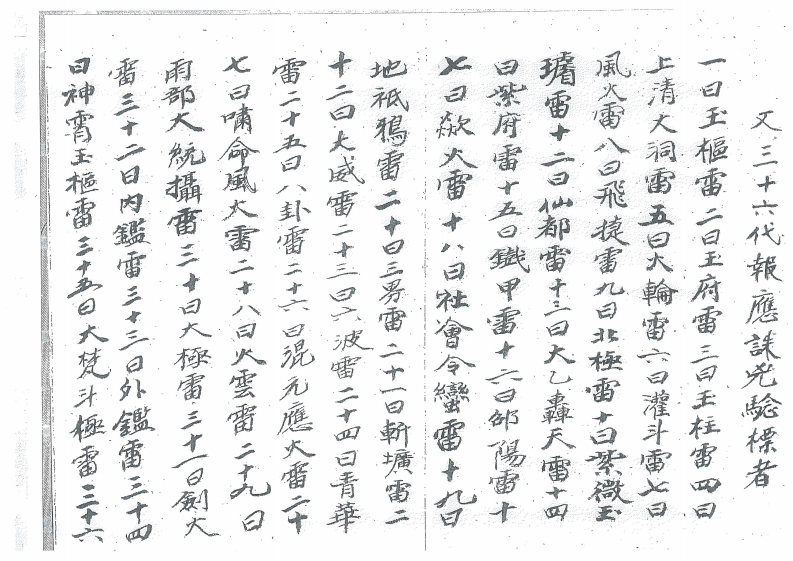 又三十六代報應誅兇驗標者
一曰玉樞雷二曰玉府雷三曰玉柱雷四曰
上清大洞雷五曰火輪雷六曰灌斗雷七曰
風火雷八曰飛捷雷九曰北極雷十曰紫微玉
璿雷十二曰仙都雷十三曰太乙轟天雷十四
曰紫府雷十五曰鐵甲雷十六曰邵陽雷十
七曰歘火雷十八曰社會令蠻雷十九曰
地祇鴉雷二十曰三界雷二十一曰斬壙雷二
十二曰大威雷二十三曰六波雷二十四曰青華
雷二十五曰八卦雷二十六曰混元應大雷二十
七曰嘯命風大雷二十八曰火雲雷二十九曰
雨部大統攝雷三十曰太極雷三十一曰劍火
雷三十二曰內鑑雷三十三曰外鑑雷三十四
曰神霄玉樞雷三十五曰大梵斗極雷三十六